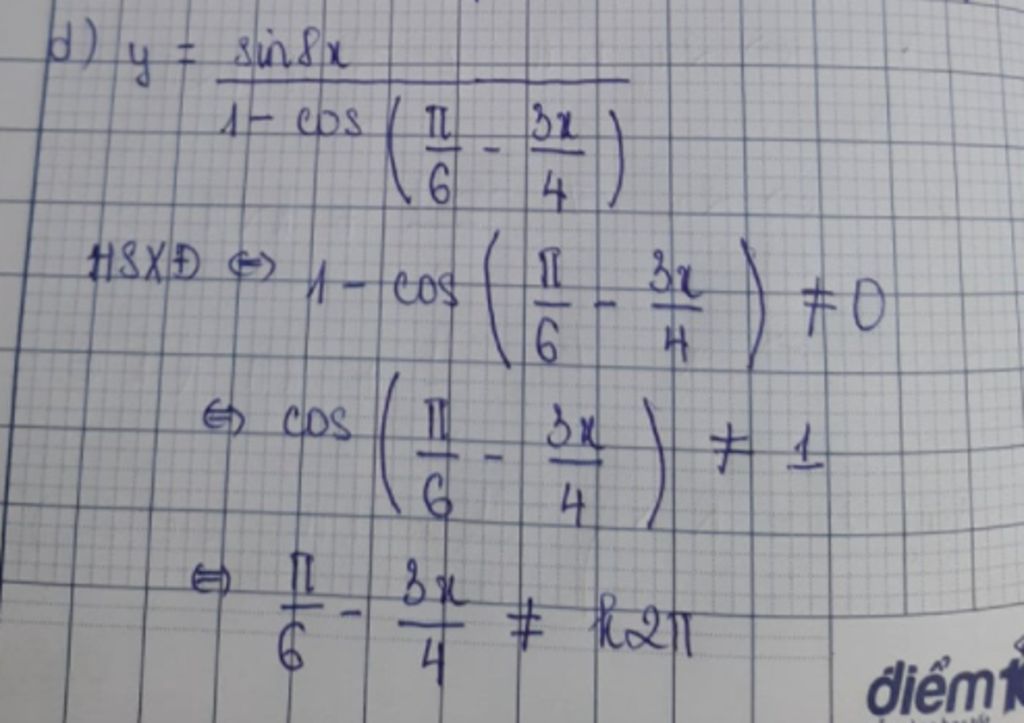 d) y = sin8x / (1 - cos(π/6 - 3x/4))
HSXĐ ⇔ 1 - cos(π/6 - 3x/4) ≠ 0
⇔ cos(π/6 - 3x/4) ≠ 1
⇔ π/6 - 3x/4 ≠ k2π
điểm10